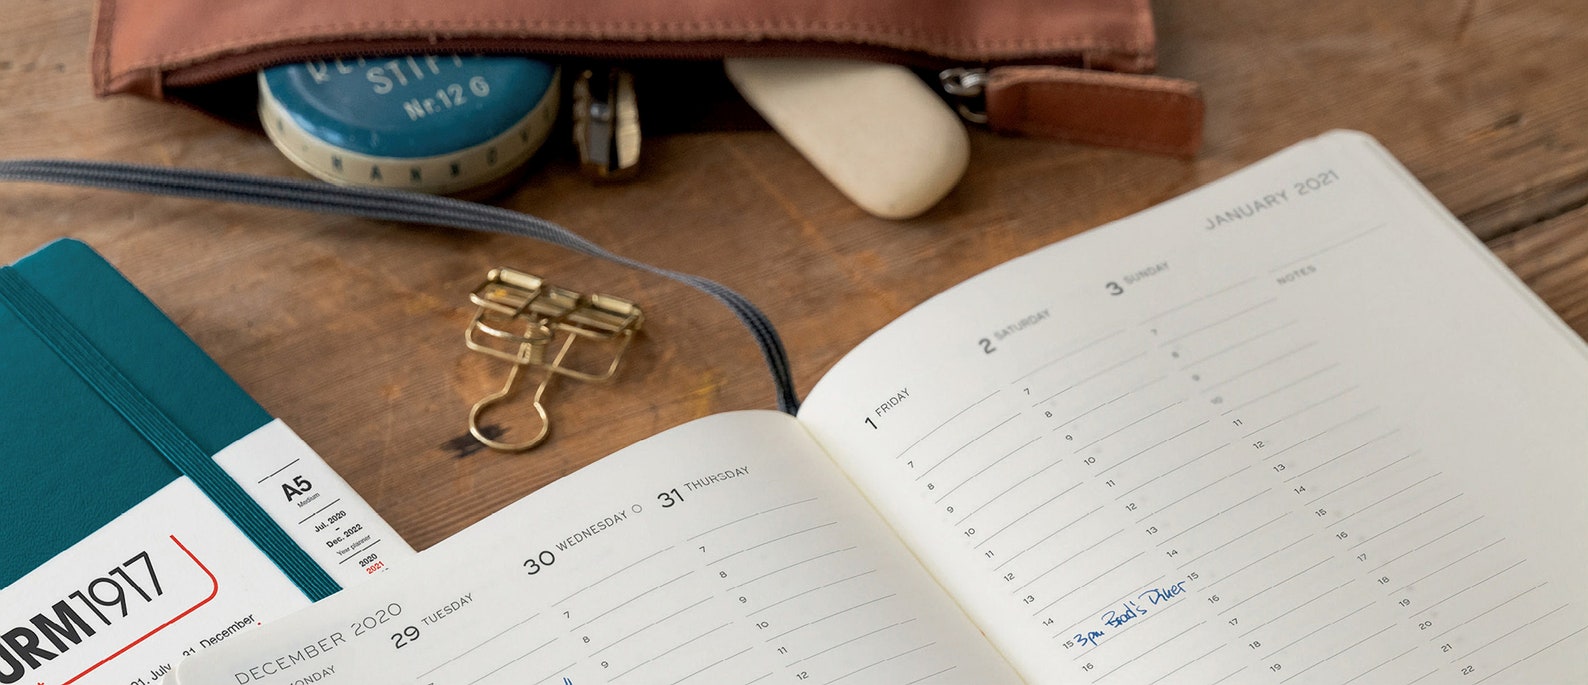 STIF
Nr.12 G
H A N N O V
A5
Medium
Jul. 2020
–
Dec. 2022
Year planner
2020
2021
URM1917
31. December
DECEMBER 2020
29 TUESDAY
30 WEDNESDAY
31 THURSDAY
7
8
9
7
8
9
10
11
12
JANUARY 2021
1 FRIDAY
2 SATURDAY
3 SUNDAY
NOTES
7
8
9
10
11
12
13
14
15 3pm Brad's Diner
16
7
8
9
10
11
12
13
14
15
16
17
18
19
7
8
9
10
11
12
13
14
15
16
17
18
19
20
21
22